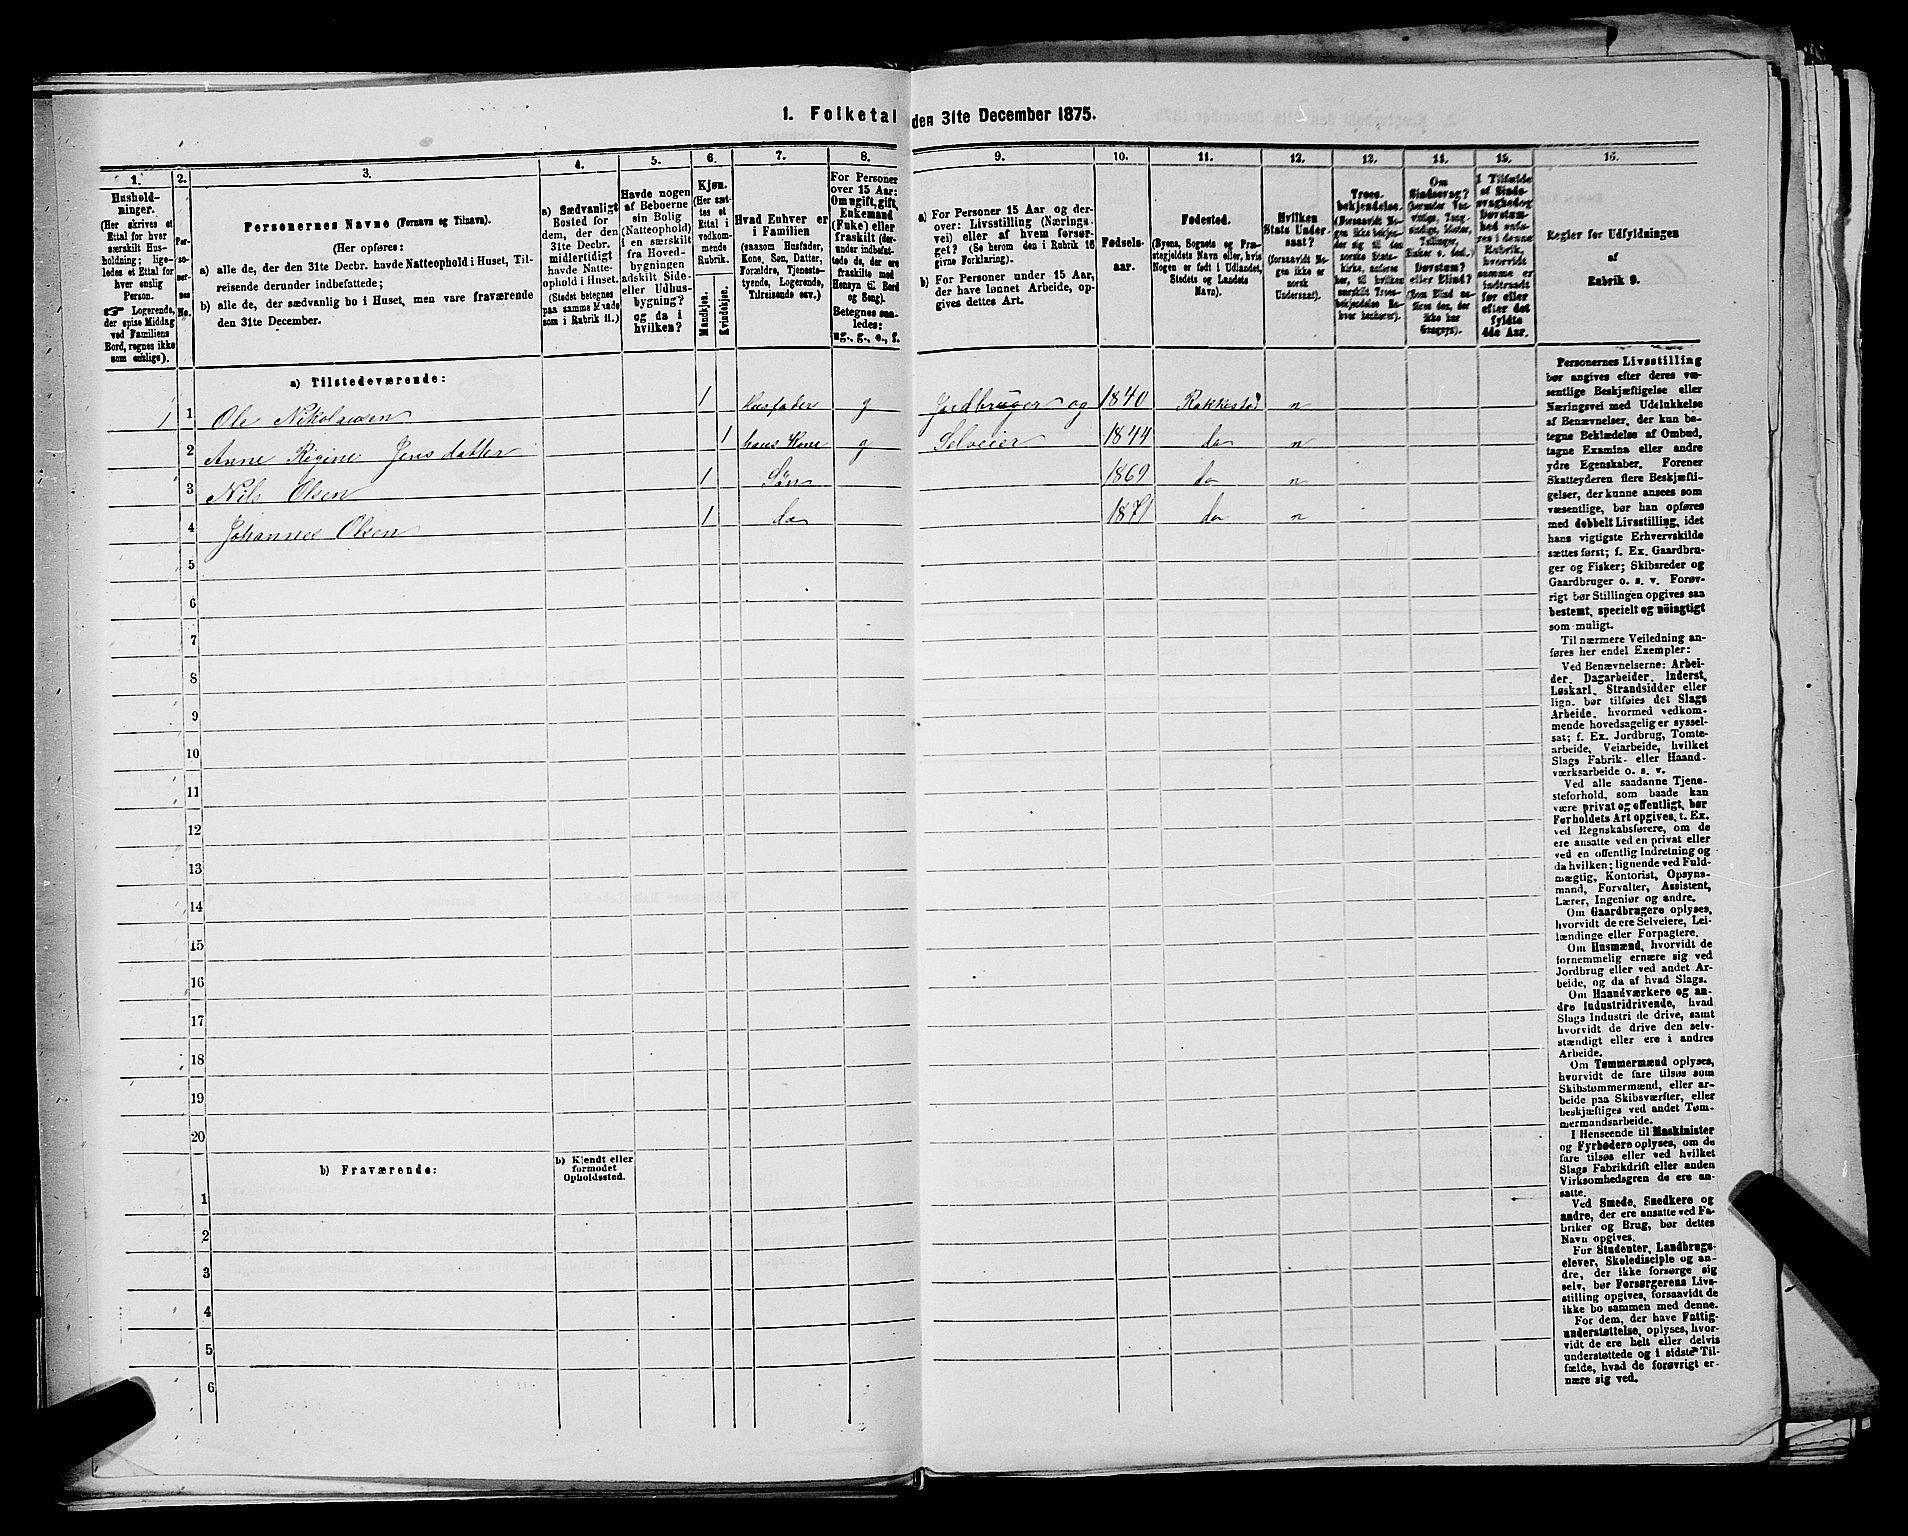 1. Folketal den 31te December 1875.
1.
Hushold-
ninger.
(Her skrives et
Ettal for hver
særskilt Hus-
holdning; lige-
ledes et Ettal for
hver enslig
Person.
☞ Logerende,
der spise Middag
ved Familiens
Bord, regnes ikke
som enslige).
2.
Per-
so-
ner-
nes
No.
3.
Personernes Navne (Fornavn og Tilnavn).
(Her opføres:
a) alle de, der den 31te Decbr. havde Natteophold i Huset, Til-
reisende derunder indbefattede;
b) alle de, der sædvanlig bo i Huset, men vare fraværende
den 31te December.
4.
a) Sædvanligt
Bosted for
dem, der den
31te Decbr.
midlertidigt
havde Natte-
ophold i Huset.
(Stedet betegnes
paa samme Maade
som i Rubrik 11.)
5.
Havde nogen
af Beboerne
sin Bolig
(Natteophold)
i en særskilt
fra Hoved-
bygningen
adskilt Side-
eller Udhus-
bygning?
og da i
hvilken?
6.
Kjøn.
(Her sæt-
tes et
Ettal i
vedkom-
mende
Rubrik.
Mandkjøn.
Kvindekjøn.
7.
Hvad Enhver er
i Familien
(saasom Husfader,
Kone, Søn, Datter,
Forældre, Tjeneste-
tyende, Logerende,
Tilreisende osv.)
8.
For Personer
over 15 Aar:
Om ugift, gift,
Enkemand
(Enke) eller
fraskilt (der-
under indbefat-
tede de, der ere
fraskilte med
Hensyn til Bord
og Seng).
Betegnes saa-
ledes:
ug., g., e., f.
9.
a) For Personer 15 Aar og der-
over: Livsstilling (Nærings-
vei) eller af hvem forsør-
get? (Se herom den i Rubrik 16
givne Forklaring).
b) For Personer under 15 Aar,
der have lønnet Arbeide, op-
gives dettes Art.
10.
Fødsels-
aar.
11.
Fødested.
(Byens, Sognets og Præ-
stegjeldets Navn eller, hvis
Nogen er født i Udlandet,
Stedets og Landets
Navn).
12.
Hvilken
Stats Under-
saat?
(forsaavidt No-
gen ikke er
norsk
Undersaat).
13.
Troes-
bekjendelse.
14.
Om
Sindssvag?
Døvstum?
eller Blind?
15.
I Tilfælde
af Sinds-
svaghed og
Døvstum-
hed anfø-
res i denne
Rubrik,
hvorvidt
samme er
indtraadt
før eller
efter det
fyldte
4de Aar.
16.
Regler for Udfyldningen
af
Rubrik 9.
a) Tilstedeværende:
1 1 Ole Nikolaisen 1 Husfader g Jordbruger og 1840 Rakkestad n
2 Anne Regine Jensdatter 1 hans Kone g Selveier 1844 do n
3 Nils Olsen 1 Søn 1869 do n
4 Johannes Olsen 1 do 1871 do n
5
6
7
8
9
10
11
12
13
14
15
16
17
18
19
20
b) Fraværende:
b) Kjendt eller
formodet
Opholdssted.
1
2
3
4
5
6
Personernes Livsstilling
bør angives efter deres væ-
sentlige Beskjæftigelse eller
Næringsvei med Udelukkelse
af Benævnelser, der kun be-
tegne Beklædelse af Ombud,
tagne Examina eller andre
ydre Egenskaber. Forener
Skatteyderen flere Beskjæfti-
gelser, der kunne ansees som
væsentlige, bør han opføres
med dobbelt Livsstilling, idet
hans vigtigste Erhvervskilde
sættes først; f. Ex. Gaardbru-
ger og Fisker; Skibsreder og
Gaardbruger o. s. v. Forøv-
rigt bør Stillingen opgives saa
bestemt, specielt og nøiagtigt
som muligt.
Til nærmere Veiledning an-
føres her endel Exempler:
Ved Benævnelserne: Arbei-
der, Dagarbeider, Inderst,
Løskarl, Strandsidder eller
lign. bør tilføies det Slags
Arbeide, hvormed vedkom-
mende hovedsagelig er syssel-
sat; f. Ex. Jordbrug, Tomte-
arbeide, Veiarbeide, hvilket
Slags Fabrik- eller Haand-
værksarbeide o. s. v.
Ved alle saadanne Tjene-
steforhold, som baade kan
være privat og offentligt, bør
Forholdets Art opgives, t. Ex.
ved Regnskabsførere, om de
ere ansatte ved en privat eller
ved en offentlig Indretning og
da hvilken; lignende ved Fuld-
mægtig, Kontorist, Opsyns-
mand, Forvalter, Assistent,
Lærer, Ingeniør og andre.
Om Gaardbrugere oplyses,
hvorvidt de ere Selveiere, Lei-
lændinge eller Forpagtere.
Om Husmænd, hvorvidt de
fornemmelig ernære sig ved
Jordbrug eller ved andet Ar-
beide, og da af hvad Slags.
Om Haandværkere og an-
dre Industridrivende, hvad
Slags Industri de drive, samt
hvorvidt de drive den selv-
stændigt eller ere i andres
Arbeide.
Om Tømmermænd oplyses,
hvorvidt de fare tilsøs som
Skibstømmermænd, eller ar-
beide paa Skibsværfter, eller
beskjæftiges ved andet Tøm-
mermandsarbeide.
I Henseende til Maskinister
og Fyrbødere oplyses, om de
fare tilsøs eller ved hvilket
Slags Fabrikdrift eller anden
Virksomhedsgren de ere an-
satte.
Ved Smede, Snedkere og
andre, der ere ansatte ved Fa-
briker og Brug, bør dettes
Navn opgives.
For Studenter, Landbrugs-
elever, Skoledisciple og an-
dre, der ikke forsørge sig
selv, bør Forsørgerens Livs-
stilling opgives, forsaavidt de
ikke bo sammen med denne.
For dem, der have Fattig-
understøttelse, oplyses, hvor-
vidt de ere helt eller delvis
understøttede og i sidste Til-
fælde, hvad de forøvrigt er-
nære sig ved.